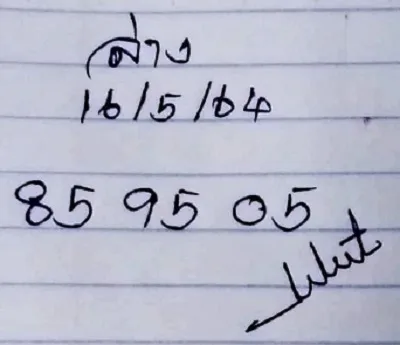 ล่าง
16/5/64
85 95 05